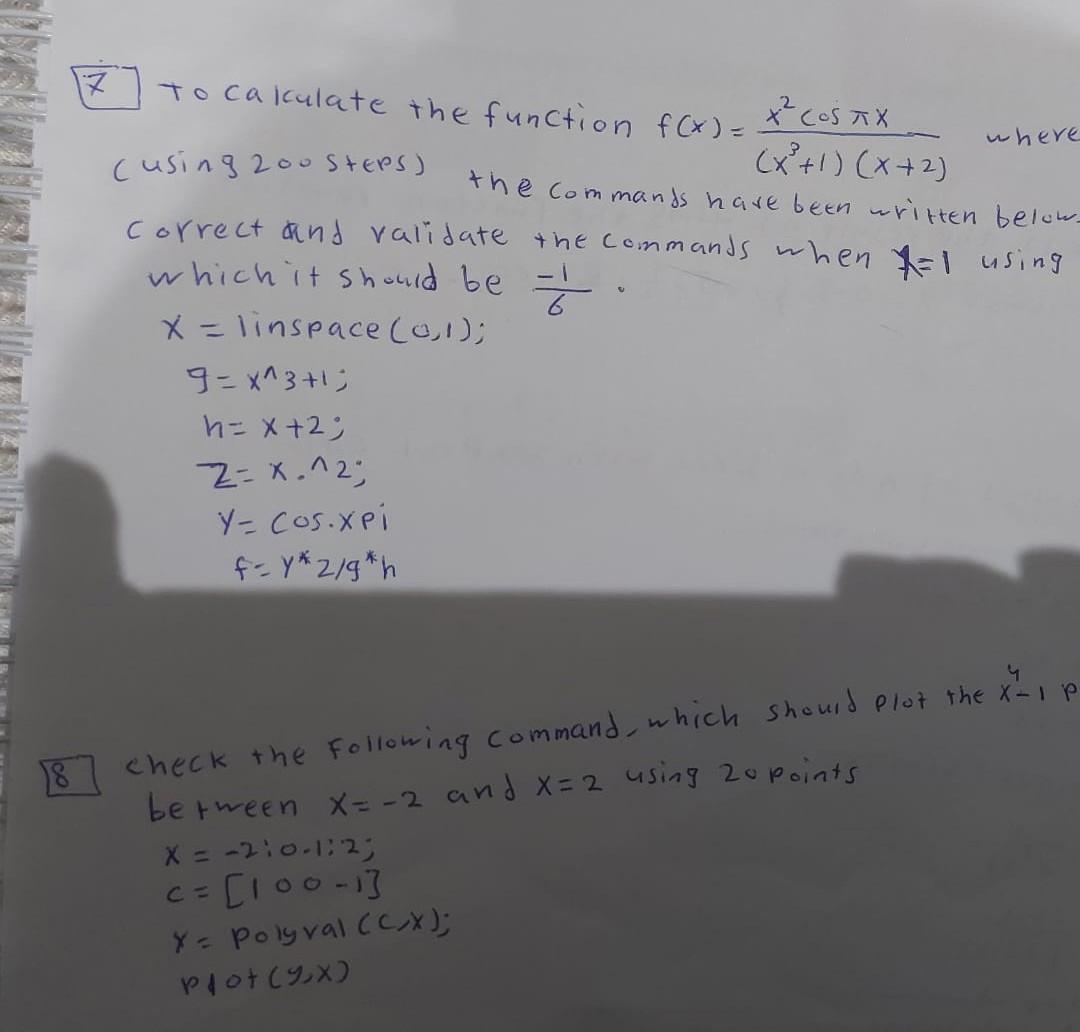 7 To calculate the function f(x) = x² cos πx / (x³+1)(x+2) where
(using 200 steps) the commands have been written below.
correct and validate the commands when x=1 using
which it should be -1/6 .
x = linspace(0,1);
g = x^3+1;
h = x+2;
z = x.^2;
y = cos.xpi
f = y*z/g*h
8 check the following command, which should plot the x⁴-1 p
between x=-2 and x=2 using 20 points
x = -2:0.1:2;
c = [1 0 0 -1]
y = polyval(c,x);
plot(y,x)